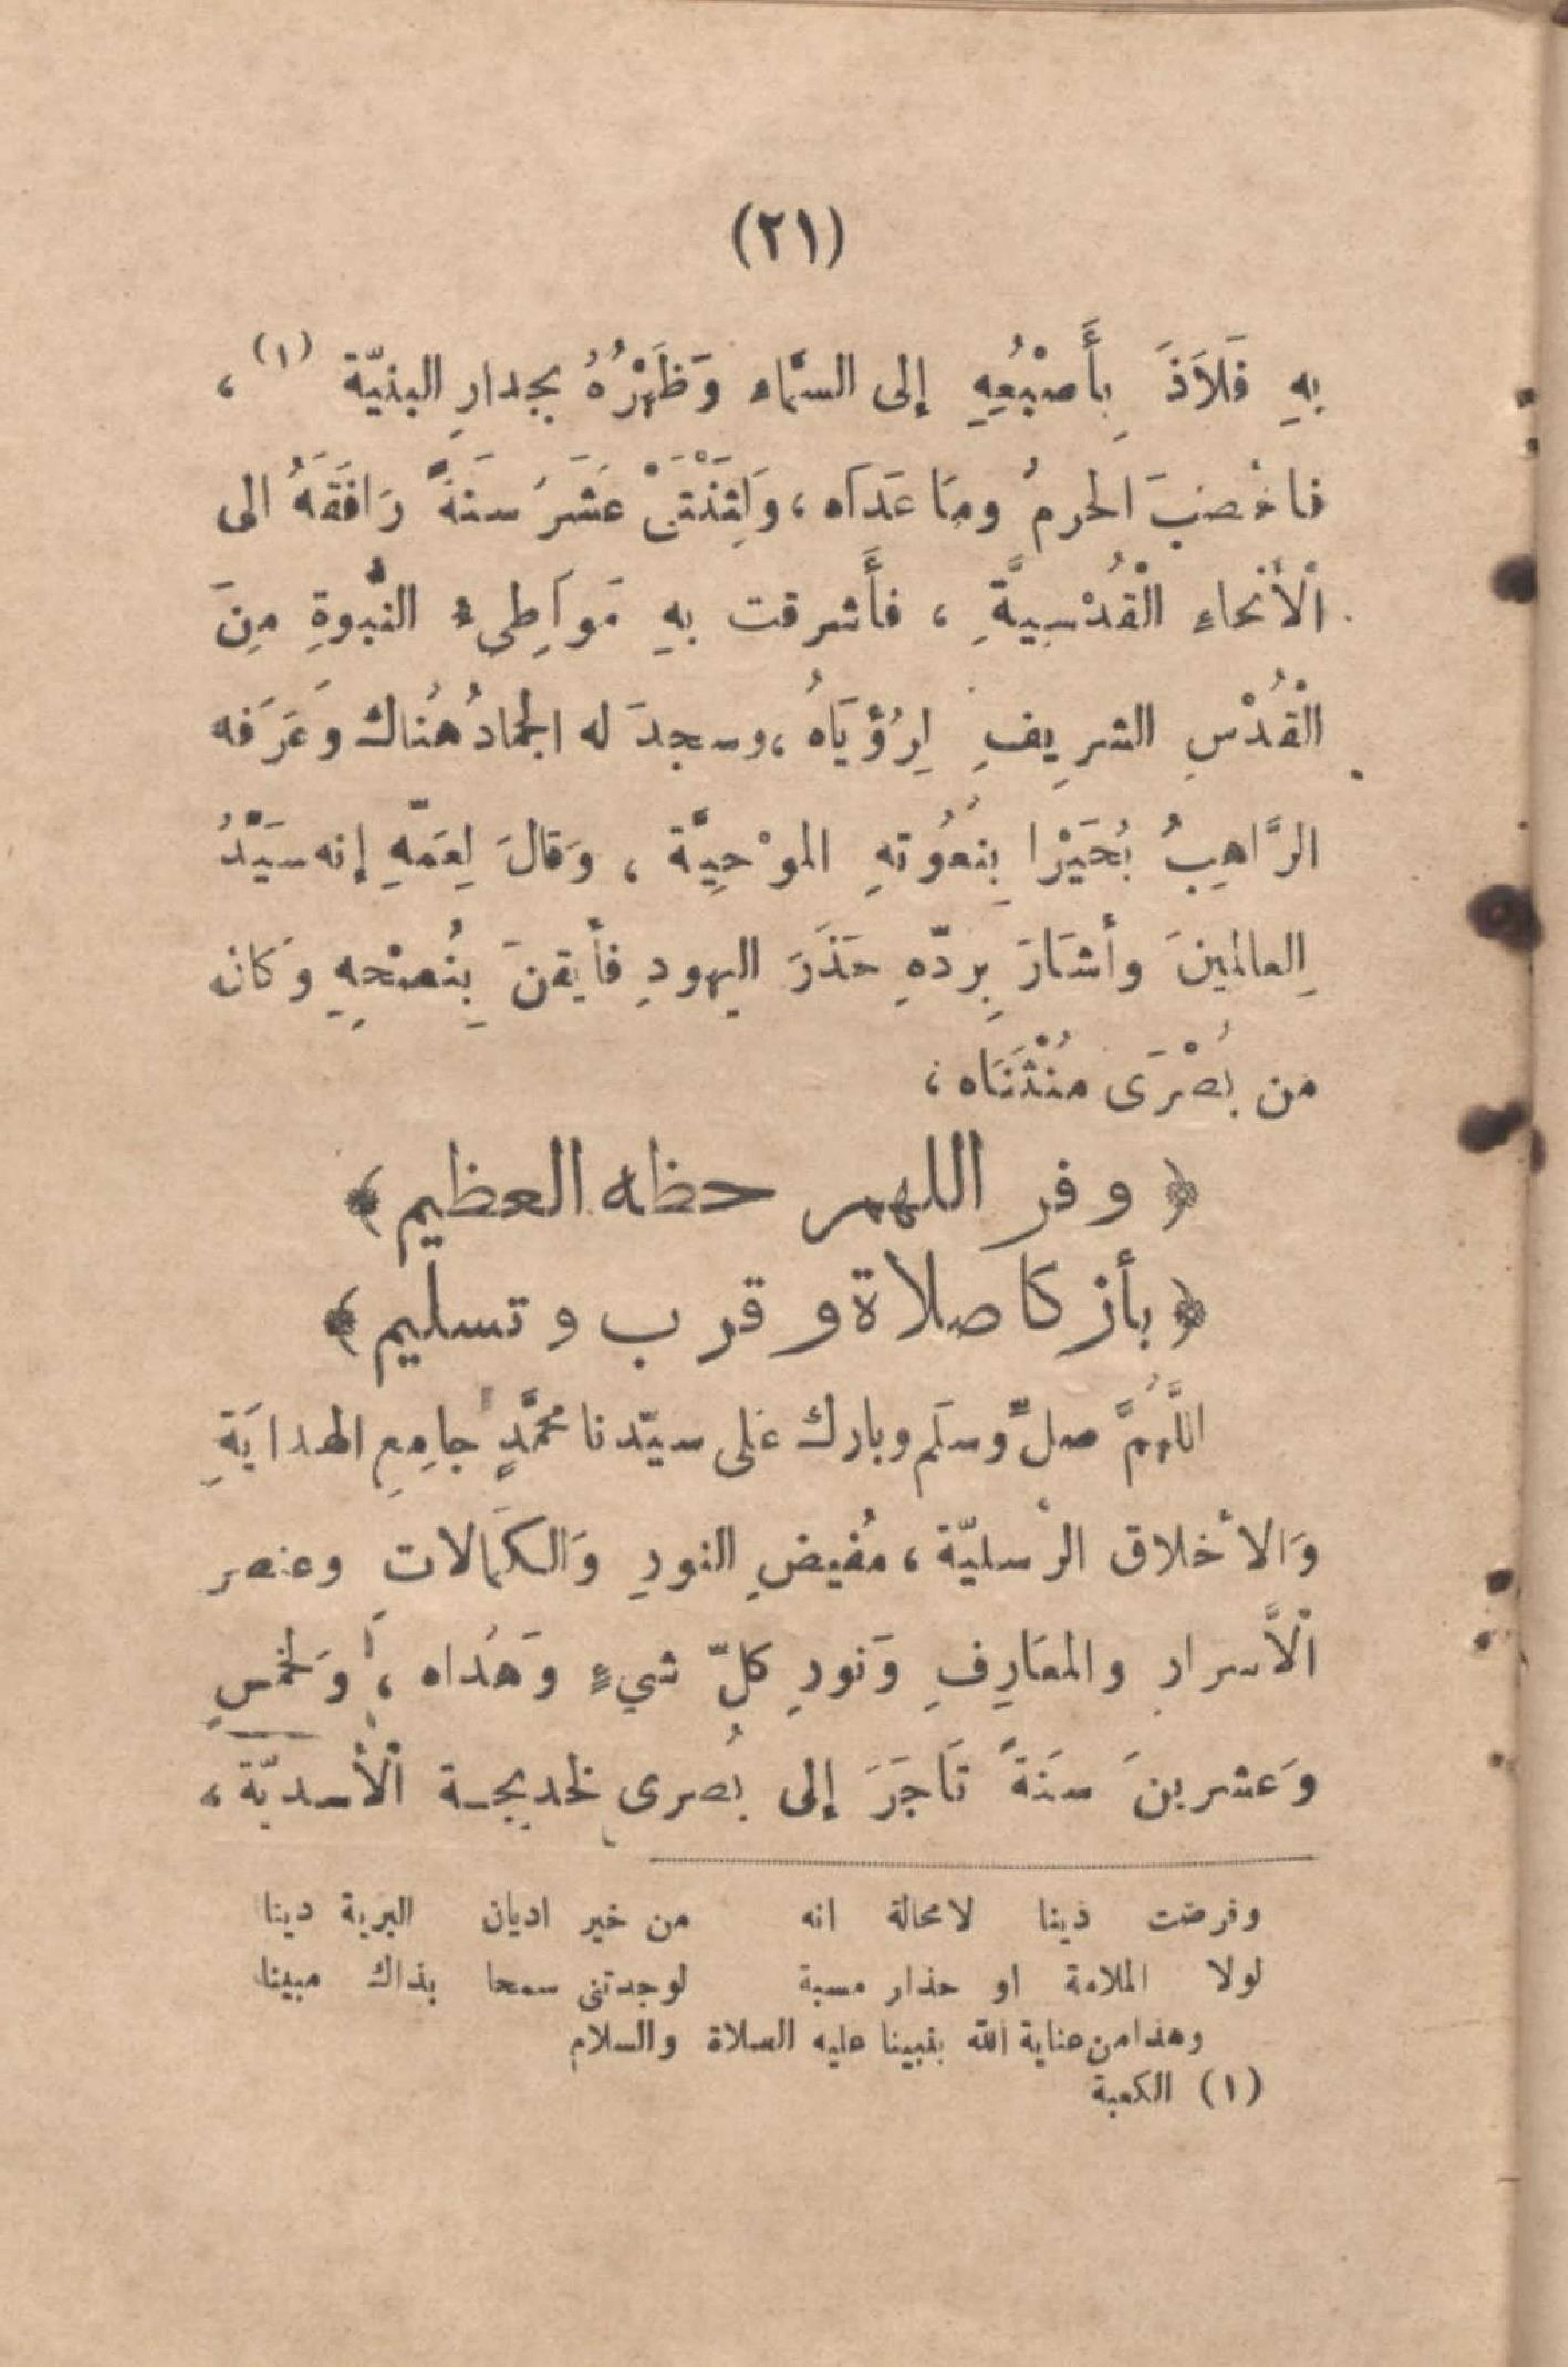 (٢١)
بِهِ فَلاَذَ بِأَصْبُعِهِ إلى السَّماء وَظَهْرُهُ بجدارِ البنيّة (١) ،
فاخْصَبَ الحرمُ ومَا عَدَاَه ، وَلِثِنْتَيْ عَشَرَ سَنَةً رَافَقَهُ الى
اْلأَنحاءِ الْقُدْسِيَّةِ ، فأَشرقت بهِ مَواَطِيءُ النُبوةِ مِنَ
الْقُدْسِ الشرِيفِ لِرُؤيَاهُ ، وسجدَ له الجمادُ هُناك وَعَرَفه
الرَّاهِبُ بُحَيْرا بِنعُوتهِ الموْحِيَّة ، وَقالَ لِعَمّهِ إنه سَيّدُ
العالمينَ وأشَارَ بِردّهِ حَذَرَ اليهودِ فأيقنَ بِنُصْحِهِ وَكانَ
من بُصْرَى مُنْثَنَاه ،
﴿ وفر اللهم حظه العظيم ﴾
﴿ بأزكا صلاة وقرب وتسليم ﴾
اللَّهُمَّ صلِّ وسلَم وبارك عَلى سيّدنا محمَّدٍ جامِعِ الهدايَةِ
وَالاْخلاق الرْسليّة ، مُفيضِ النورِ وَالكمَالاتِ وعنصر
اْلأَسرارِ والمعَارِفِ وَنورِ كلّ شيءٍ وَهُدَاه ، وَلخمسِ
وَعشرينَ سَنَةً تَاجَرَ إلى بُصرى لخديجـة اْلأَسديّة ،
وفرضت دينا لامحالة انه من خير اديان البرية دينا
لولا الملامة او حذار مسبة لوجدتنى سمحا بذاك مبينا
وهذا من عناية الله بنبينا عليه الصلاة والسلام
(١) الكعبة